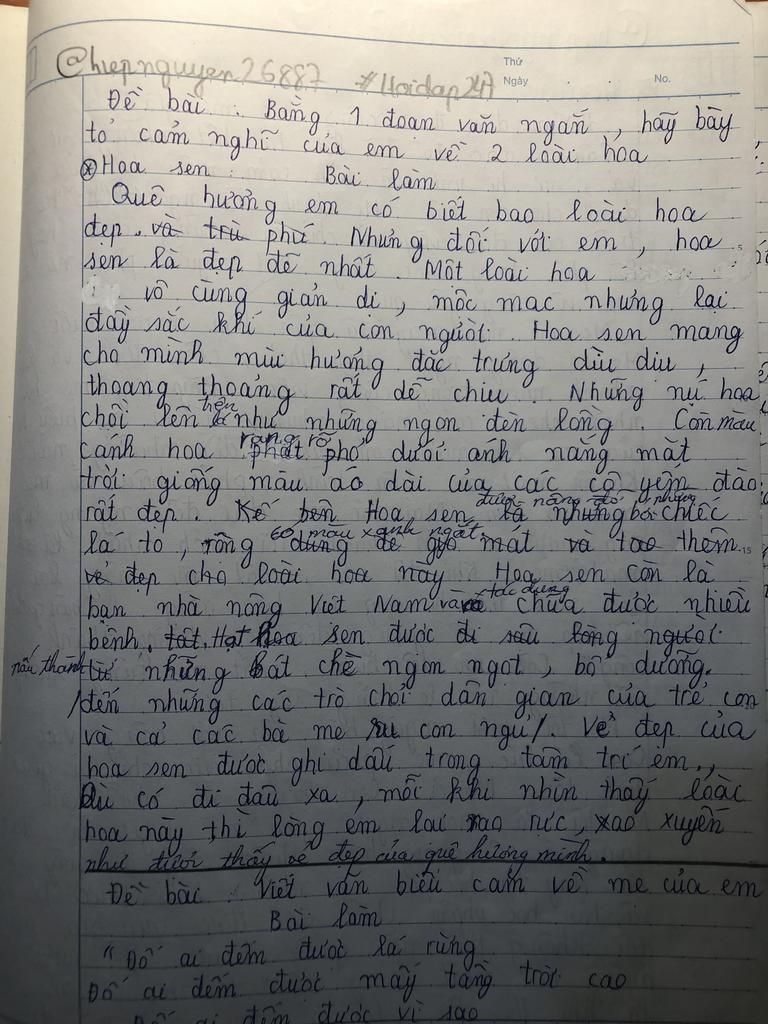 @hiepnguyen26887 #Hoidap247
Thứ
Ngày . . No.
Đề bài : Bằng 1 đoạn văn ngắn, hãy bày
tỏ cảm nghĩ của em về 2 loài hoa
* Hoa sen : Bài làm
Quê hương em có biết bao loài hoa
đẹp. và trù phú. Nhưng đối với em, hoa
sen là đẹp đẽ nhất. Một loài hoa
vô cùng giản dị, mộc mạc nhưng lại
đầy sắc khí của con người. Hoa sen mang
cho mình mùi hương đặc trưng dìu dịu,
thoang thoảng rất dễ chịu. Những nụ hoa
chồi lên như những ngọn đèn lồng. Còn màu
cánh hoa rạng rỡ phát phơ dưới ánh nắng mặt
trời giống màu áo dài của các cô yếm đào
rất đẹp. Kế bên Hoa sen được nâng đỡ là những bởi chiếc
lá to, rộng có màu xanh ngắt. dùng để mát và tạo thêm
vẻ đẹp cho loài hoa này. Hoa sen còn là
bạn nhà nông Việt Nam và có tác dụng chữa được nhiều
bệnh. tật. Hạt Hoa sen được đi sâu lòng người
nấu thành từ những bát chè ngon ngọt, bổ dưỡng.
/đến những các trò chơi dân gian của trẻ con
và cả các bà mẹ ru con ngủ/. Vẻ đẹp của
hoa sen được ghi dấu trong tâm trí em.,
Dù có đi đâu xa, mỗi khi nhìn thấy loài
hoa này thì lòng em lại rạo rực, xao xuyến
như được thấy vẻ đẹp của quê hương mình.
Đề bài : Viết văn biểu cảm về mẹ của em
Bài làm
“Đố ai đếm được lá rừng
Đố ai đếm được mấy tầng trời cao
Đố ai đếm được vì sao